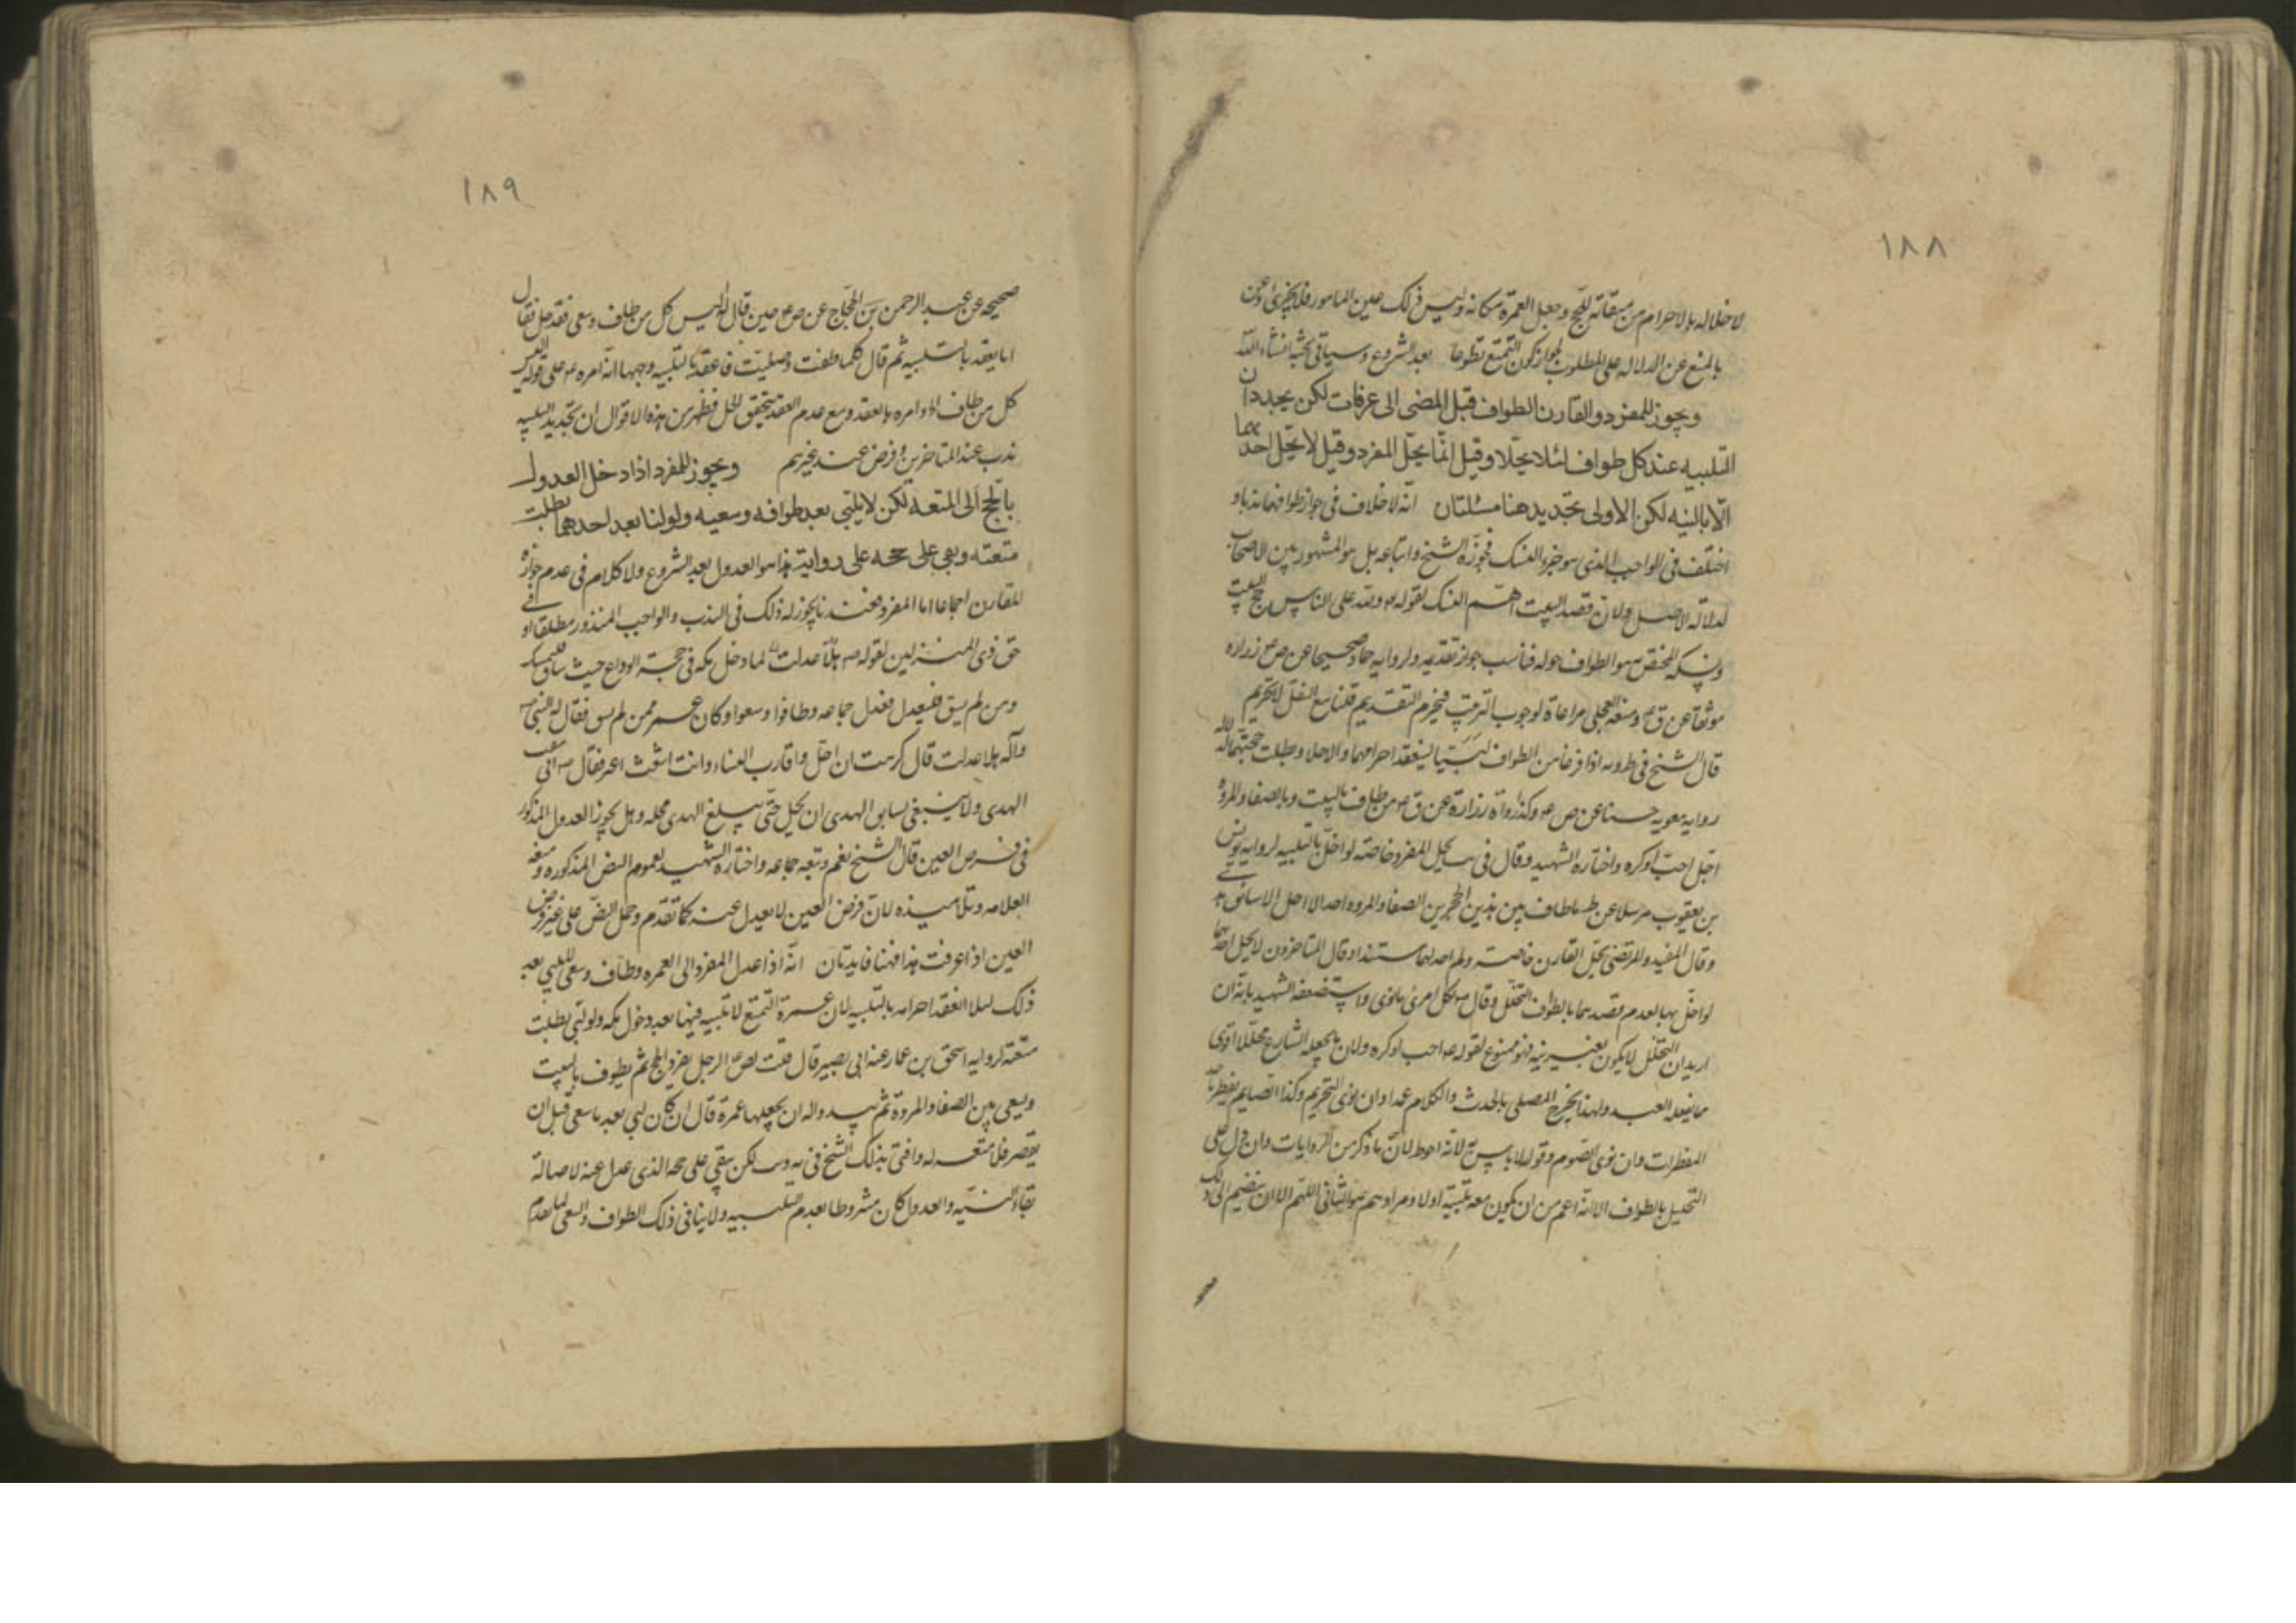 ١٨٨
لاخلاله بالاحرام من ميقاته للحج وجعل العمرة مكانه وليس ذلك عين المامور فلا يجزى
بالمنع عن الدلالة على المطلوب لجواز كون التمتع تطوعا بعد الشروع وسياتى بحثه انشاء الله
ويجوز للمفرد والقارن الطواف قبل المضى الى عرفات لكن يجددان
التلبيه عند كل طواف لئلا يحلا وقيل انما يحل المفرد وقيل لا يحل احدهما
الا بالنيه لكن الاولى تجديد هنا مسئلتان انه لا خلاف فى جواز طوافهما ندبا و
اختلف فى الواجب الذى هو جزء النسك فجوزه الشيخ واتباعه بل هو المشهور بين الاصحاب
لدلالة الاصل ولان قصد البيت اهم النسك لقوله ولله على الناس حج البيت
المختص هو الطواف حوله فناسب جواز تقديمه ولرواية حماد صحيحا عن ص زراره
موثقا عن ق ومنعه العجلى مراعاة لوجوب الترتيب فيحرم التقديم قلنا مع النقل لا تحريم
قال الشيخ فى ط و يه اذا فرغا من الطواف لبيا لينعقد احرامهما والا احلا وبطلت حجتهما
رواية معويه حسنا عن ص وكذا رواه زرارة عن ق من طاف بالبيت وبالصفا والمروة
احل احب او كره واختاره الشهيد وقال فى يحل المفرد خاصة لو اخل بالتلبيه لرواية يونس
بن يعقوب مرسلا عن ط ما طاف بين هذين الحجرين الصفا والمروه احد الا احل الا سائق
وقال المفيد والمرتضى يحل القارن خاصة ولم اجد لهما مستندا وقال المتاخرون لا يحل احدهما
لو اخل بها لعدم قصدهما بالطواف التحلل وقال لكل امرئ ما نوى واستضعفه الشهيد بانه ان
اريد ان التحلل لا يكون بغير نيه فهو ممنوع لقوله احب او كره ولان ما يجعله الشارع محللا اقوى
مما يفعله العبد ولهذا يخرج المصلى بالحدث والكلام عمدا وان نوى التحريم وكذا الصايم يفطر
المفطرات وان نوى الصوم وقوله لا باس لانه احوط لان ما ذكر من الروايات وان دل على
التحليل بالطواف الا انه اعم من ان يكون معه تلبية اولا ومرادهم هو الثانى اللهم الا ان ينضم الى ذلك
١٨٩
صحيحه عن عبد الرحمن بن الحجاج عن ص حين قال له اليس كل من طاف وسعى فقد حل فقال
انما يعقد بالتلبيه ثم قال كلما طفت وصليت فاعقد بالتلبيه وجهها انه امره على قوله اليس
كل من طاف امره بالعقد ومع عدم العقد يتحقق الحل فظهر من هذه الاقوال ان تجديد التلبيه
ندب عند المتاخرين وفرض عند غيرهم ويجوز للمفرد اذا دخل العدول
بالحج الى المتعه لكن لا يلبى بعد طوافه وسعيه ولو لبا بعد احدهما بطلت
متعته وبقى على حجه على رواية هذا هو العدول بعد الشروع ولا كلام فى عدم جوازه
للقارن اجماعا اما المفرد فعندنا يجوز له ذلك فى الندب والواجب المنذور مطلقا او فى
حق ذى المنزلين لقوله هلا عدلت لما دخل مكه فى حجة الوداع حيث ساق
ومن لم يسق فليعدل فعدل جماعه وطافوا وسعوا وكان عمر ممن لم يسق فقال له النبى
وآله هلا عدلت قال كرهت ان احل واقارب النساء وانت اشعث اغبر فقال
الهدى ولا ينبغى لسابق الهدى ان يحل حتى يبلغ الهدى محله وهل يجوز العدول المذكور
فى فرض العين قال الشيخ نعم وتبعه جماعه واختاره الشهيد لعموم النص المذكوره ومنعه
العلامه وتلاميذه لان فرض العين لا يعدل عنه كما تقدم وحمل النص على غير فرض
العين اذا عرفت هذا فهنا فايدتان انه اذا عدل المفرد الى العمره وطاف وسعى لا يلبى بعد
ذلك لئلا انعقد احرامه بالتلبيه لان عمرة التمتع لا تلبيه فيها بعد دخول مكه ولو لبى بطلت
متعته لروايه اسحق بن عمار عن ابى بصير قال قلت لص الرجل يفرد الحج ثم يطوف بالبيت
ويسعى بين الصفا والمروة ثم يبدو له ان يجعلها عمرة قال ان كان لبى بعد ما سعى قبل ان
يقصر فلا متعه له وافتى بذلك الشيخ فى يه و ط لكن يبقى على حجه الذى عدل عنه لاصالة
بقاء النيه والعدول كان مشروطا بعدم التلبيه ولا ينافى ذلك الطواف والسعى لما تقدم